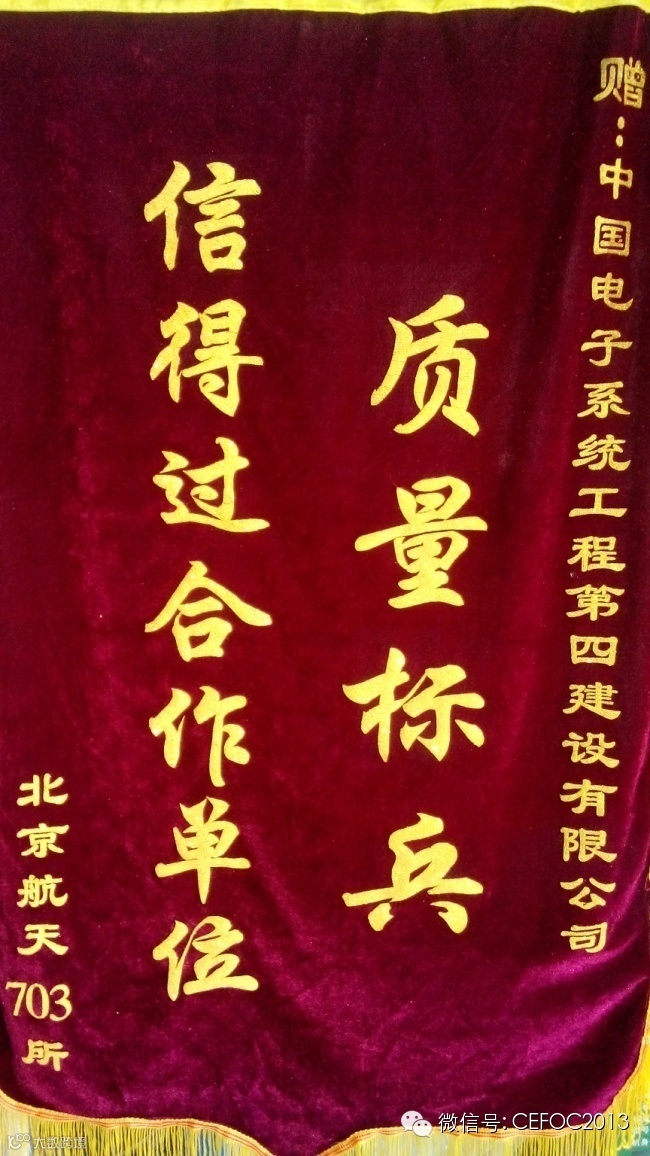 赠:中国电子系统工程第四建设有限公司
质量标兵
信得过合作单位
北京航天703所
微信号: CEFOC2013